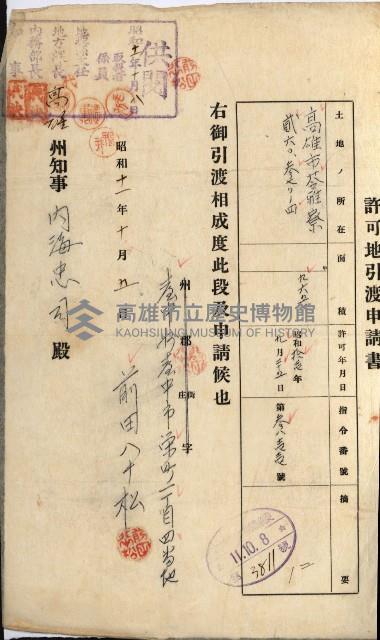 許可地引渡申請書
土地ノ所在
面積
許可年月日
指令番號
摘要
高雄市苓雅寮
貳六〇參ノ四
昭和拾壱年
九月三十五日
第 號
右御引渡相成度此段及申請候也
昭和十一年十月五日
州 郡 街庄 字
臺中州臺中市栄町一丁目四番地
前田八十松
高雄州知事 內海忠司 殿
供閱
昭和十一年十月八日
地方課長
內務部長
11.10.8
3811
高雄市立歷史博物館
KAOHSIUNG MUSEUM OF HISTORY